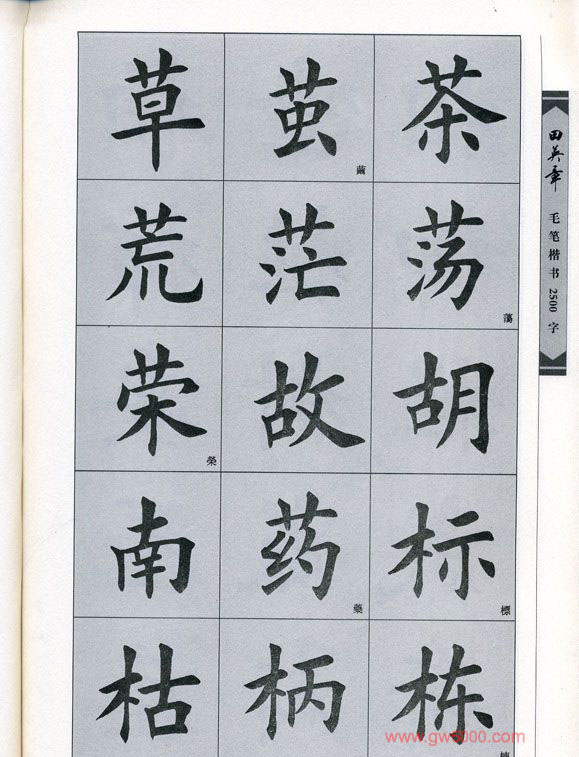 草 茧 茶
繭
荒 茫 荡
蕩
荣 故 胡
榮
南 药 标
藥 標
枯 柄 栋
棟
田英章
毛笔楷书2500字
www.gw5000.com